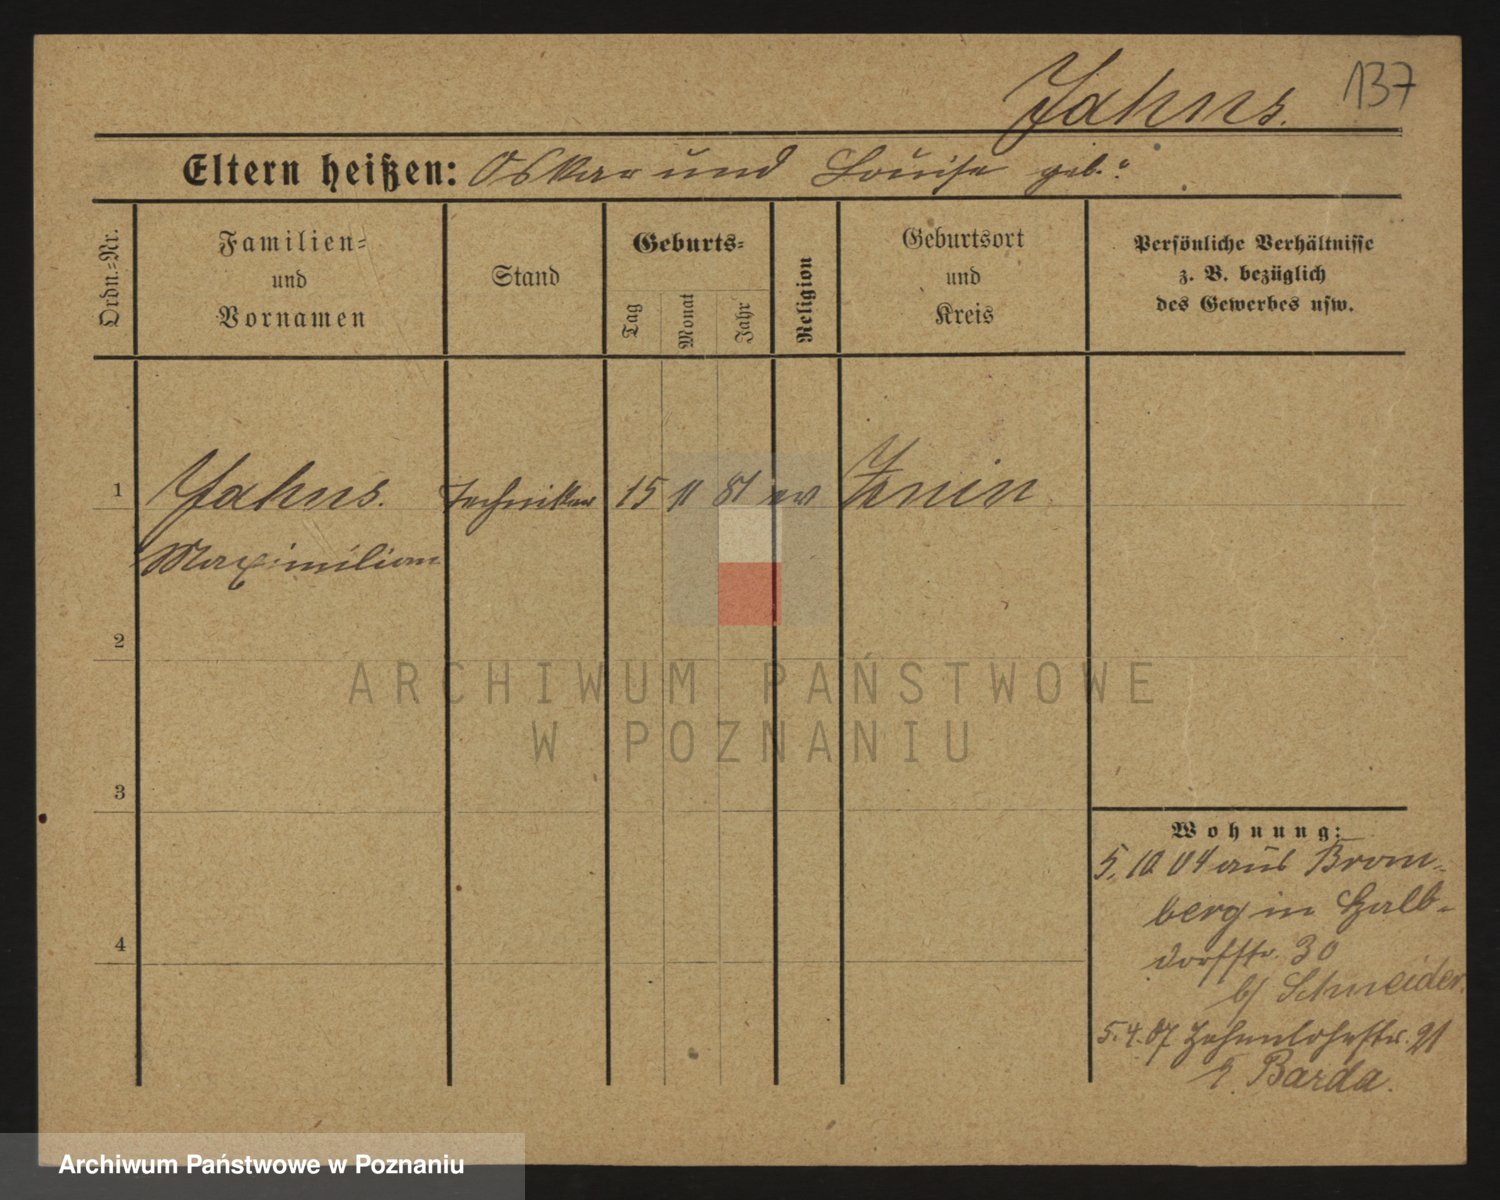 Jahns. 137
Eltern heißen: Oskar und Louise geb.
Ordn.=Nr.
Familien=
und
Vornamen
Stand
Geburts=
Tag
Monat
Jahr
Religion
Geburtsort
und
Kreis
Persönliche Verhältnisse
z. B. bezüglich
des Gewerbes usw.
1 Jahns. Techniker 15 11 81 ev Znin
Maximilian
2
ARCHIWUM PAŃSTWOWE
W POZNANIU
3
Wohnung:
5. 10 04 aus Brom-
berg in Halb-
dorfstr. 30
4
b/ Schneider.
5. 4. 07 21
Barda.
Archiwum Państwowe w Poznaniu